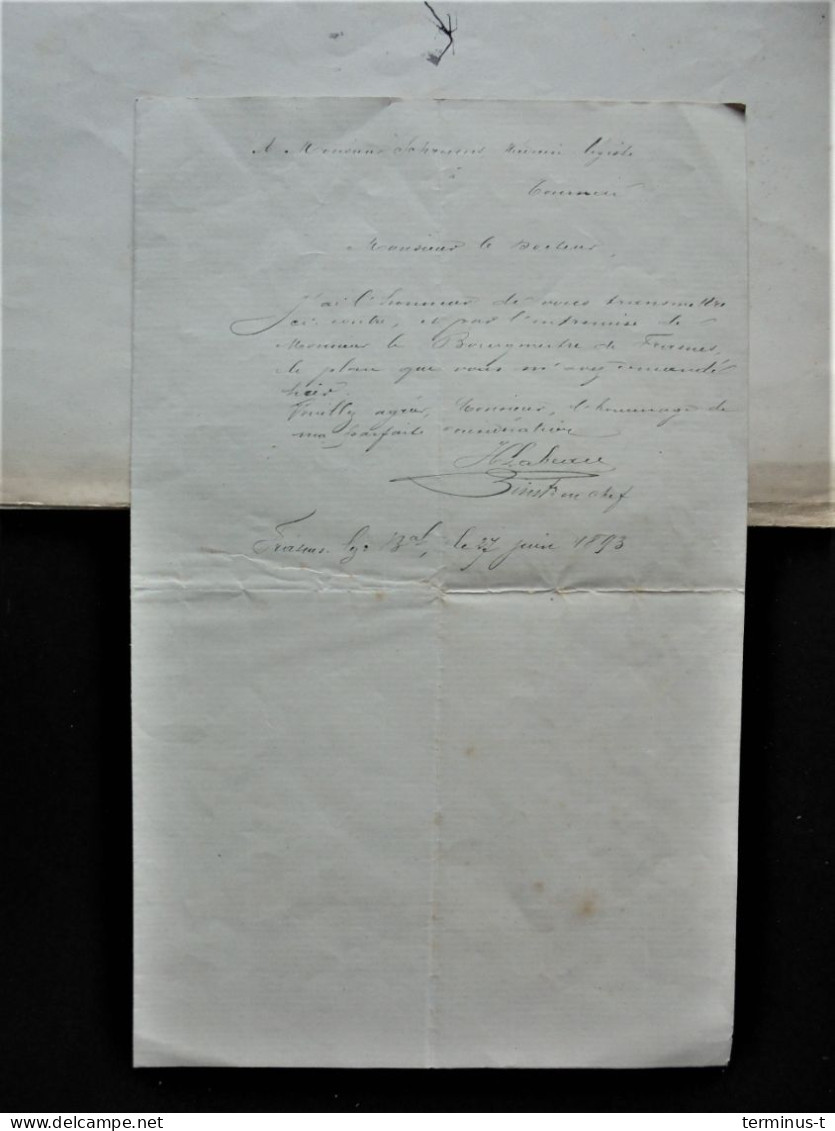 A Monsieur médecin légiste
à
Tournai
Monsieur le Docteur,
J'ai l'honneur de vous transmettre
ci-contre, et par l'entremise de
Monsieur le Bourgmestre de Frasnes,
le plan que vous m'avez demandé
hier.
Veuillez agréer, Monsieur, l'hommage de
ma parfaite considération
en chef
Frasnes lez , le 27 juin 1893
terminus-t